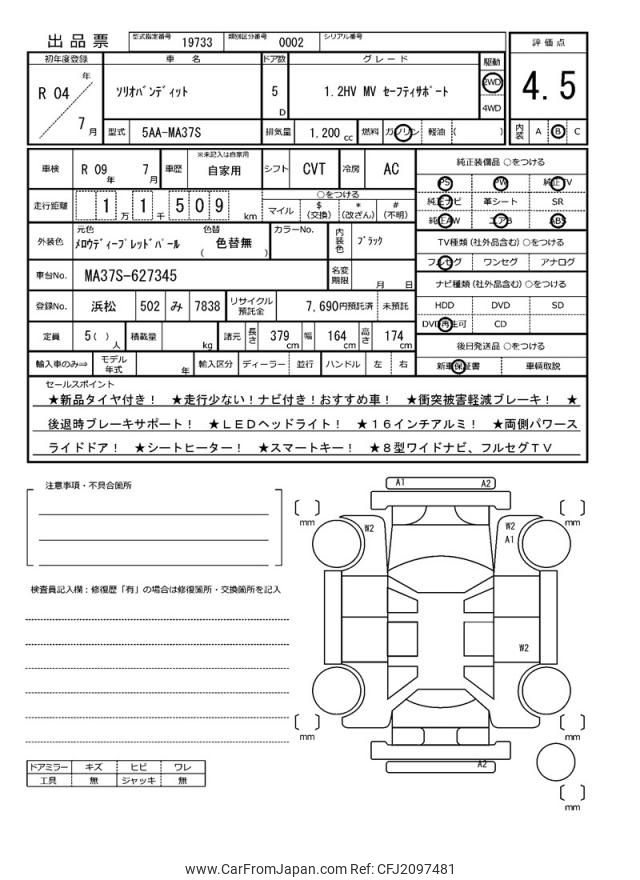 出品票 型式指定番号 19733 類別区分番号 0002 シリアル番号
評価点
初年度登録 車名 ドア数 グレード 駆動
R 04 年 ソリオバンディット 5 D 1.2HV MV セーフティサポート 2WD 4WD 4.5
7 月 型式 5AA-MA37S 排気量 1.200 cc 燃料 ガソリン 軽油 ( ) 内装 A B C
車検 R 09 年 7 月 車歴 ※未記入は自家用 自家用 シフト CVT 冷房 AC
純正装備品 ○をつける
PS PW 純正TV
走行距離 1 万 1 千 5 0 9 km ○をつける マイル $ (交換) * (改ざん) # (不明)
純正ナビ 革シート SR
純正AW エアB ABS
外装色 元色 メロウディープレッドパール 色替 ( 色替無 ) カラーNo. 内装色 ブラック
TV種類 (社外品含む) ○をつける
フルセグ ワンセグ アナログ
車台No. MA37S-627345 名変期限 月 日
ナビ種類 (社外品含む) ○をつける
登録No. 浜松 502 み 7838 リサイクル預託金 7,690円預託済 未預託
HDD DVD SD
DVD再生可 CD
定員 5( ) 人 積載量 kg 諸元 長さ 379 cm 幅 164 cm 高さ 174 cm
後日発送品 ○をつける
輸入車のみ⇒ モデル年式 年 輸入区分 ディーラー 並行 ハンドル 左 右
新車保証書 車輌取説
セールスポイント
★新品タイヤ付き! ★走行少ない!ナビ付き!おすすめ車! ★衝突被害軽減ブレーキ! ★
後退時ブレーキサポート! ★LEDヘッドライト! ★16インチアルミ! ★両側パワース
ライドドア! ★シートヒーター! ★スマートキー! ★8型ワイドナビ、フルセグTV
注意事項・不具合箇所
A1 A2
mm mm
W2 W2
A1
検査員記入欄：修復歴「有」の場合は修復箇所・交換箇所を記入
W2
mm mm
ドアミラー キズ ヒビ ワレ
工具 無 ジャッキ 無
A2
mm
www.CarFromJapan.com Ref: CFJ2097481